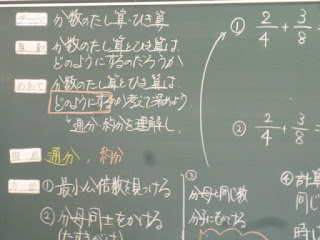 テーマ 分数のたし算・ひき算
分数のたし算とひき算は
どのようにするのだろうか
めあて 分数のたし算とひき算を
どのようにするか考えて求めよう
通分・約分を理解し、
視点 通分, 約分
方法 ① 最小公倍数を見つける
② 分母同士をかける
(たすがけ)
③
分母と同じ数
分子にをかける
④ 計算
同じ
時に
① 2/4 + 3/8 =
② 2/4 + 3/8 =